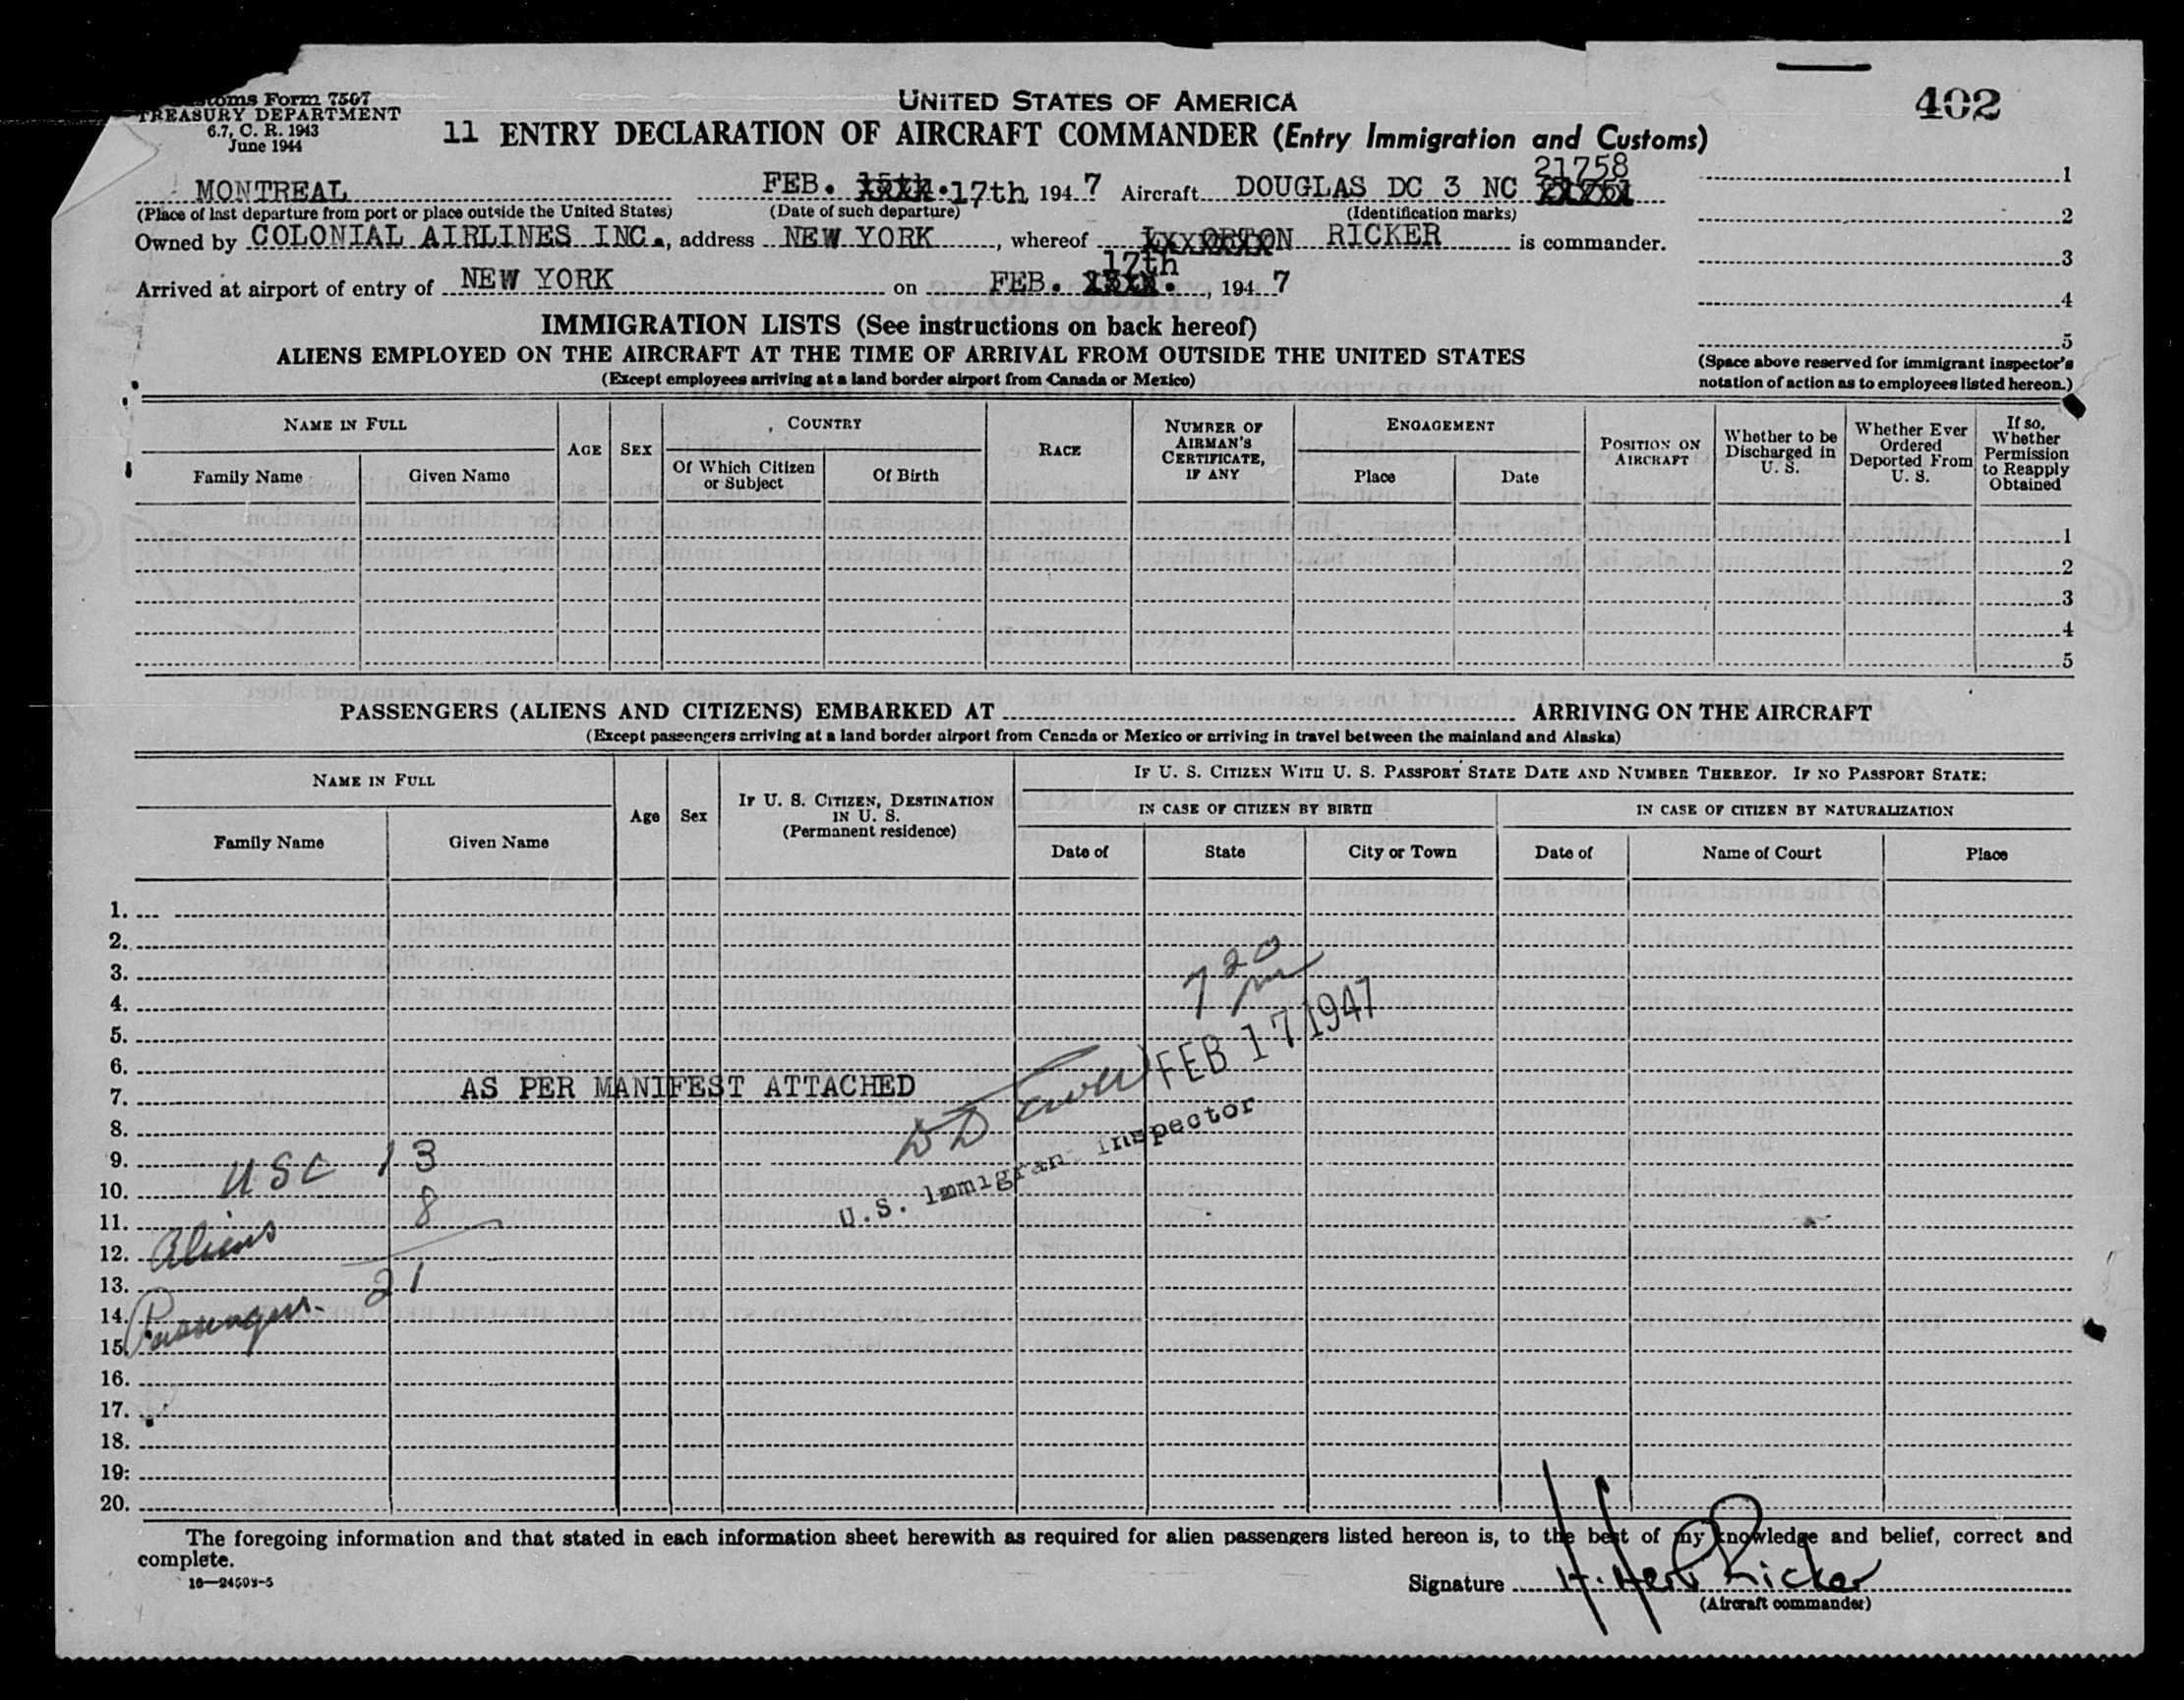 UNITED STATES OF AMERICA
402
Customs Form 7507
TREASURY DEPARTMENT
6.7, C. R. 1943
June 1944
11 ENTRY DECLARATION OF AIRCRAFT COMMANDER (Entry Immigration and Customs)
21758
MONTREAL FEB. 17th 194 7 Aircraft DOUGLAS DC 3 NC
(Place of last departure from port or place outside the United States) (Date of such departure) (Identification marks)
Owned by COLONIAL AIRLINES INC., address NEW YORK, whereof RICKER is commander.
17th
Arrived at airport of entry of NEW YORK on FEB. , 194 7
1
2
3
4
5
(Space above reserved for immigrant inspector's
notation of action as to employees listed hereon.)
IMMIGRATION LISTS (See instructions on back hereof)
ALIENS EMPLOYED ON THE AIRCRAFT AT THE TIME OF ARRIVAL FROM OUTSIDE THE UNITED STATES
(Except employees arriving at a land border airport from Canada or Mexico)
NAME IN FULL
Family Name Given Name
AGE
SEX
COUNTRY
Of Which Citizen
or Subject
Of Birth
RACE
NUMBER OF
AIRMAN'S
CERTIFICATE,
IF ANY
ENGAGEMENT
Place Date
POSITION ON
AIRCRAFT
Whether to be
Discharged in
U. S.
Whether Ever
Ordered
Deported From
U. S.
If so,
Whether
Permission
to Reapply
Obtained
1
2
3
4
5
PASSENGERS (ALIENS AND CITIZENS) EMBARKED AT ARRIVING ON THE AIRCRAFT
(Except passengers arriving at a land border airport from Canada or Mexico or arriving in travel between the mainland and Alaska)
NAME IN FULL
Family Name Given Name
Age
Sex
IF U. S. CITIZEN, DESTINATION
IN U. S.
(Permanent residence)
IF U. S. CITIZEN WITH U. S. PASSPORT STATE DATE AND NUMBER THEREOF. IF NO PASSPORT STATE:
IN CASE OF CITIZEN BY BIRTH IN CASE OF CITIZEN BY NATURALIZATION
Date of State City or Town Date of Name of Court Place
1.
2.
3.
4. 7 20 pm
5.
6. FEB 17 1947
7. AS PER MANIFEST ATTACHED
8.
9. USC 13
10. U.S. Immigrant Inspector
11. 8
12. Aliens
13. 21
14. Passengers
15.
16.
17.
18.
19.
20.
The foregoing information and that stated in each information sheet herewith as required for alien passengers listed hereon is, to the best of my knowledge and belief, correct and
complete.
16—24503-5
Signature H. Herb Ricker
(Aircraft commander)